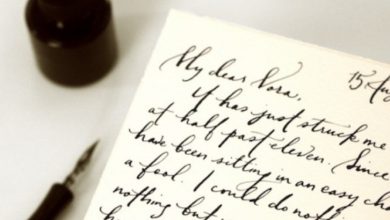 15 Aug
My dear Nora,
it has just struck me
at half past eleven. Since
have been sitting in an easy cha
a fool. I could do noth
nothing but